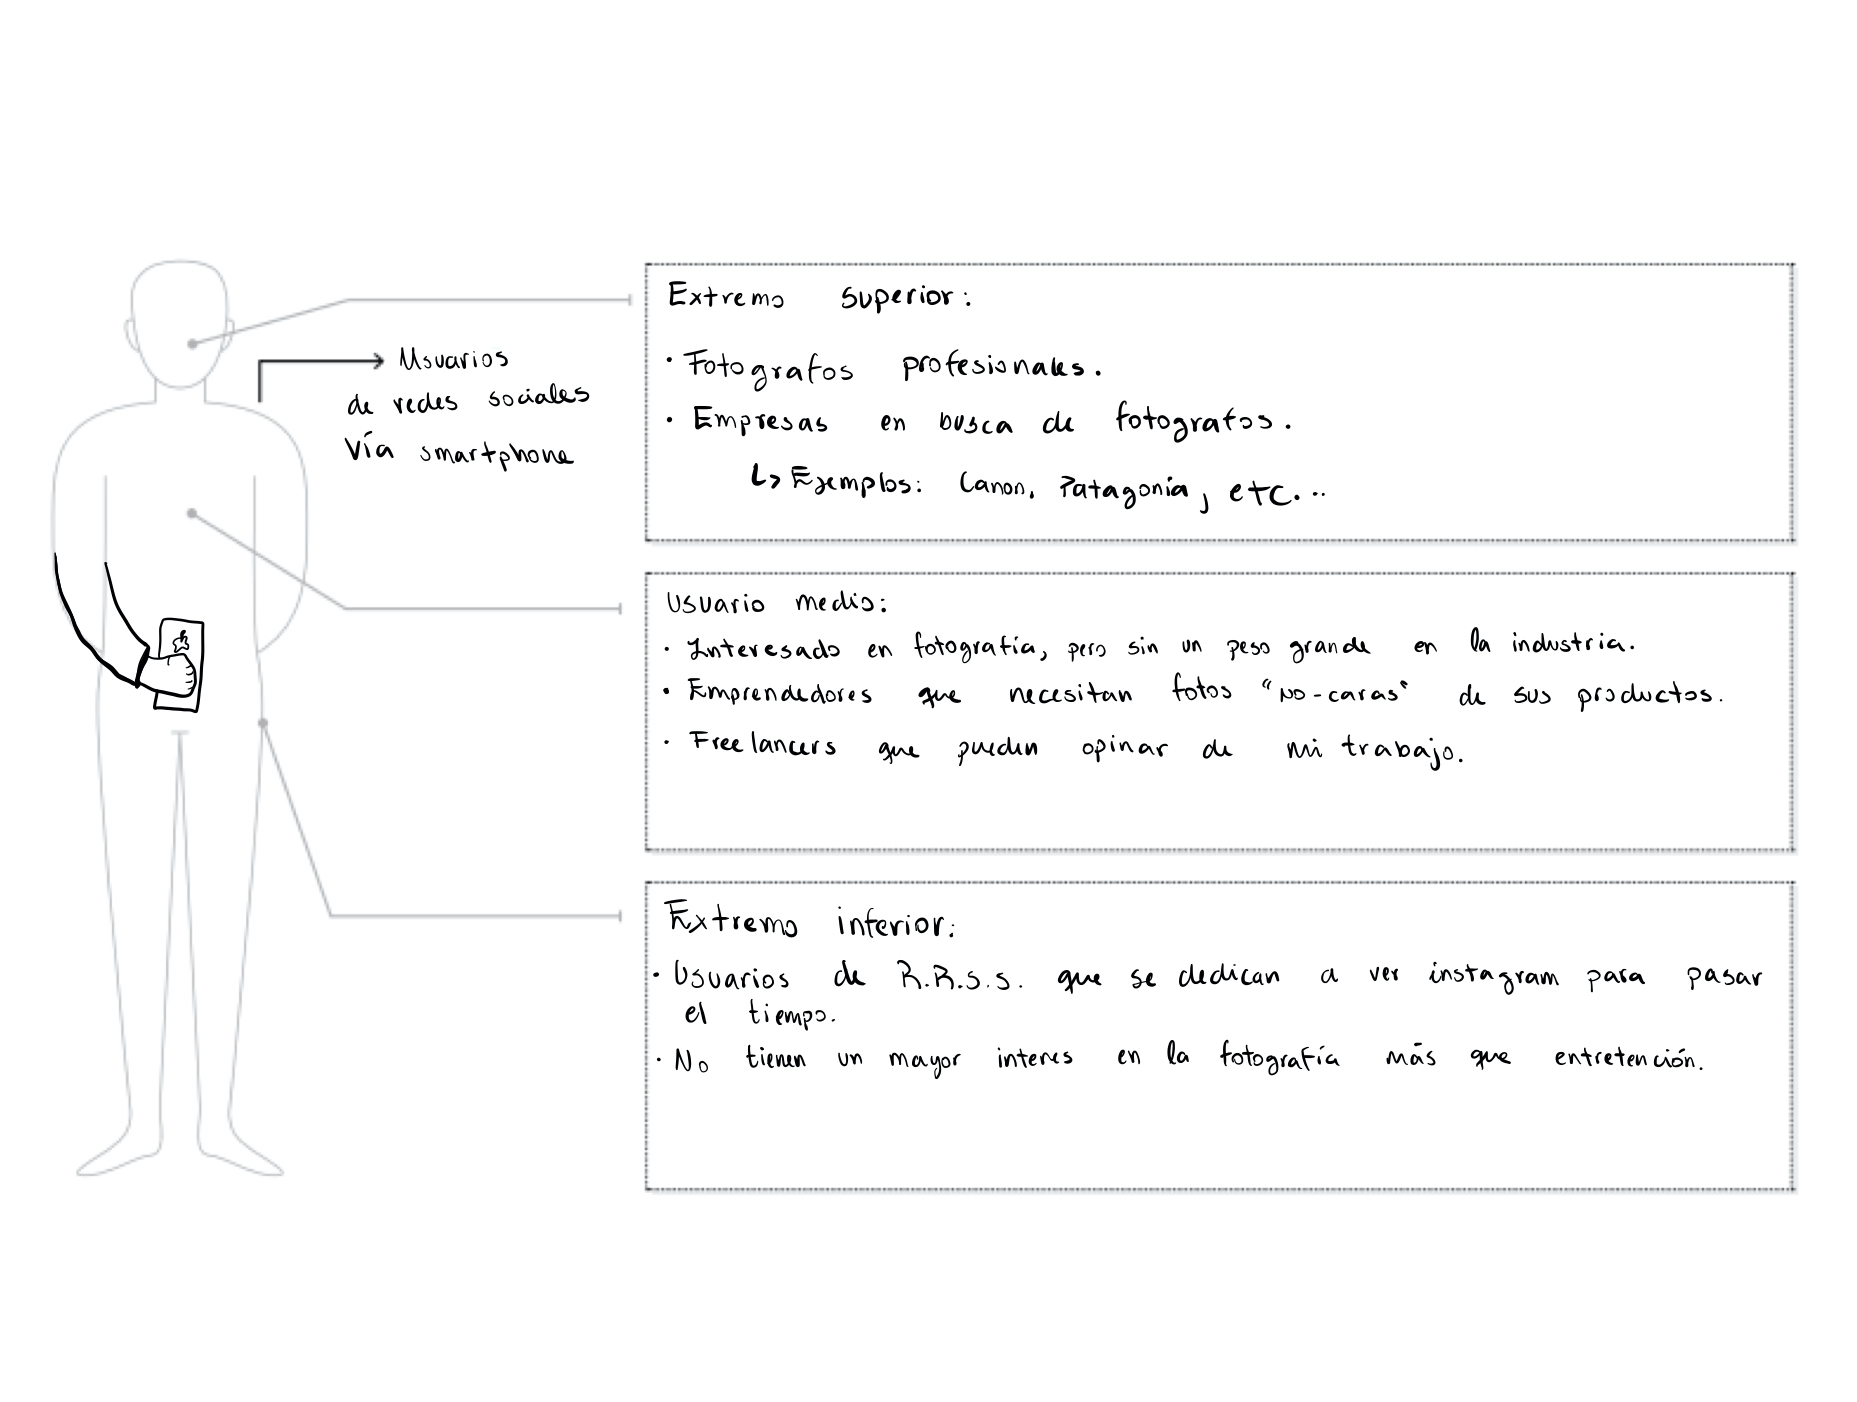 Usuarios
de redes sociales
Vía smartphone
Extremo superior:
· Fotografos profesionales.
· Empresas en busca de fotografos.
↳ Ejemplos: Canon, Patagonia, etc...
Usuario medio:
· Interesado en fotografía, pero sin un peso grande en la industria.
· Emprendedores que necesitan fotos "no-caras" de sus productos.
· Freelancers que pueden opinar de mi trabajo.
Extremo inferior:
· Usuarios de R.R.S.S. que se dedican a ver instagram para pasar
el tiempo.
· No tienen un mayor interes en la fotografía más que entretención.